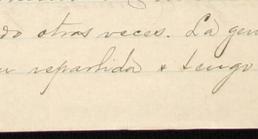 do otras veces. La gen
repartida & tengo